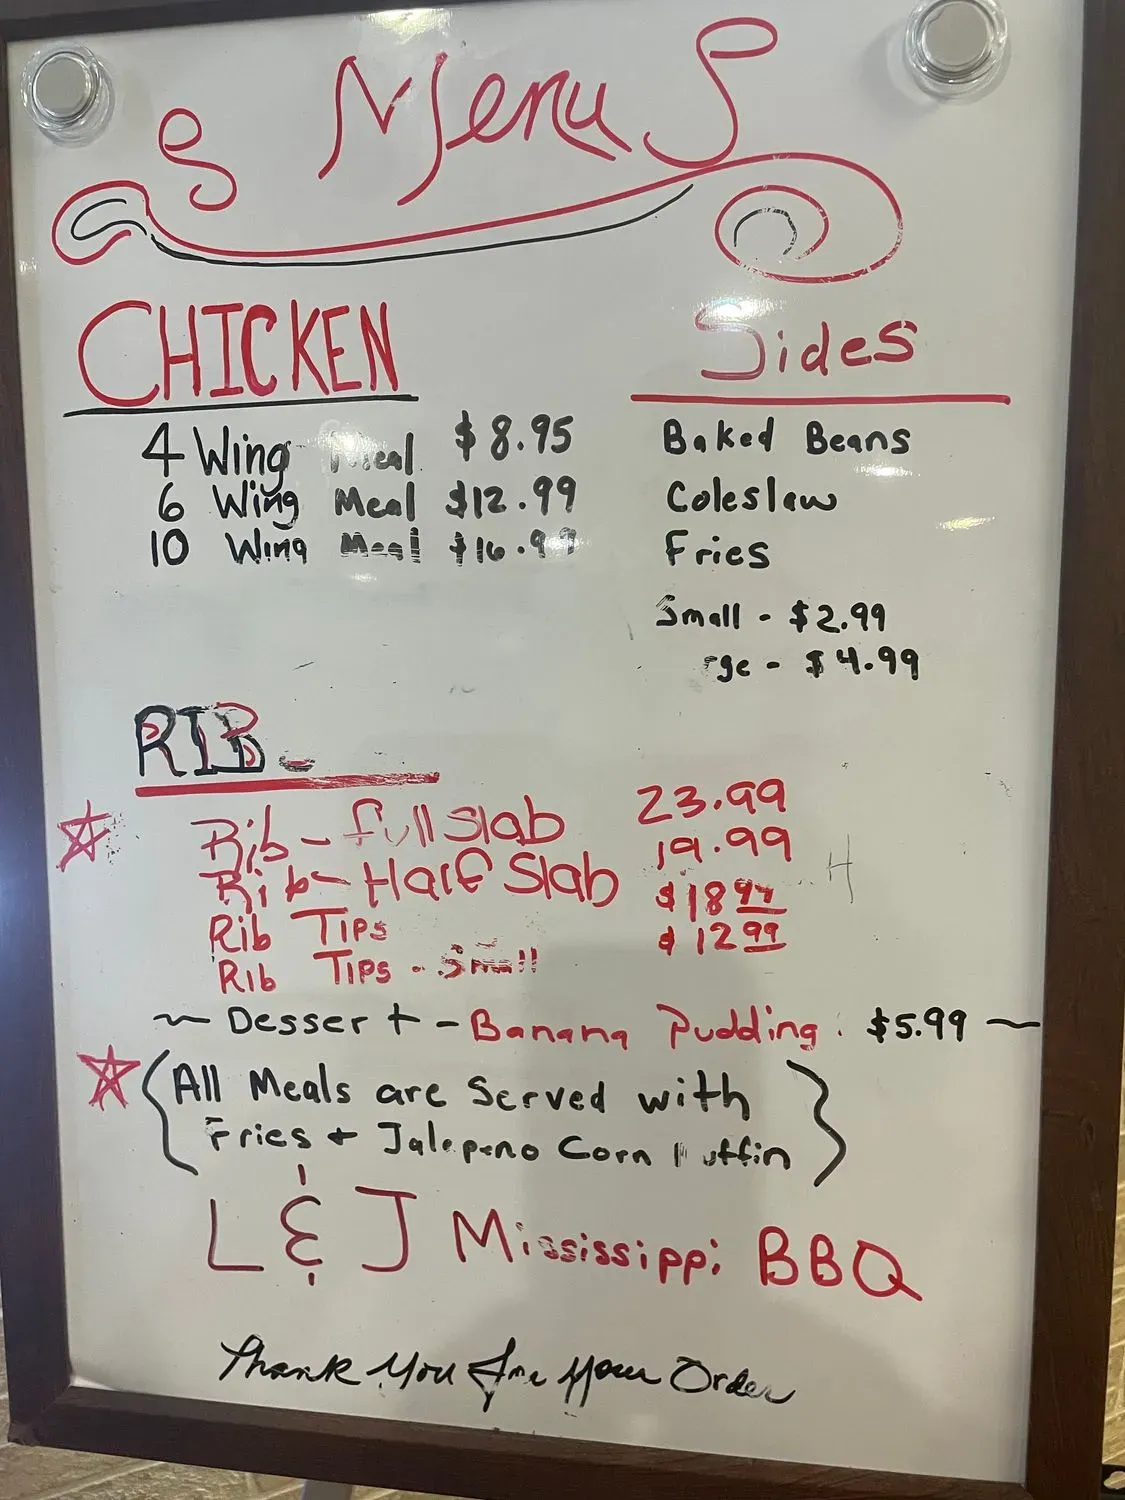 Menu
CHICKEN
4 Wing Meal $8.95
6 Wing Meal $12.99
10 Wing Meal $16.99
Sides
Baked Beans
Coleslaw
Fries
Small - $2.99
rge - $4.99
RIB
Rib - full Slab 23.99
Rib - Half Slab 19.99
Rib Tips $18 99
Rib Tips - Small $12 99
~ Dessert - Banana Pudding. $5.99 ~
All Meals are Served with
Fries + Jalepeno Corn Muffin
L & J Mississippi BBQ
Thank You For Your Order